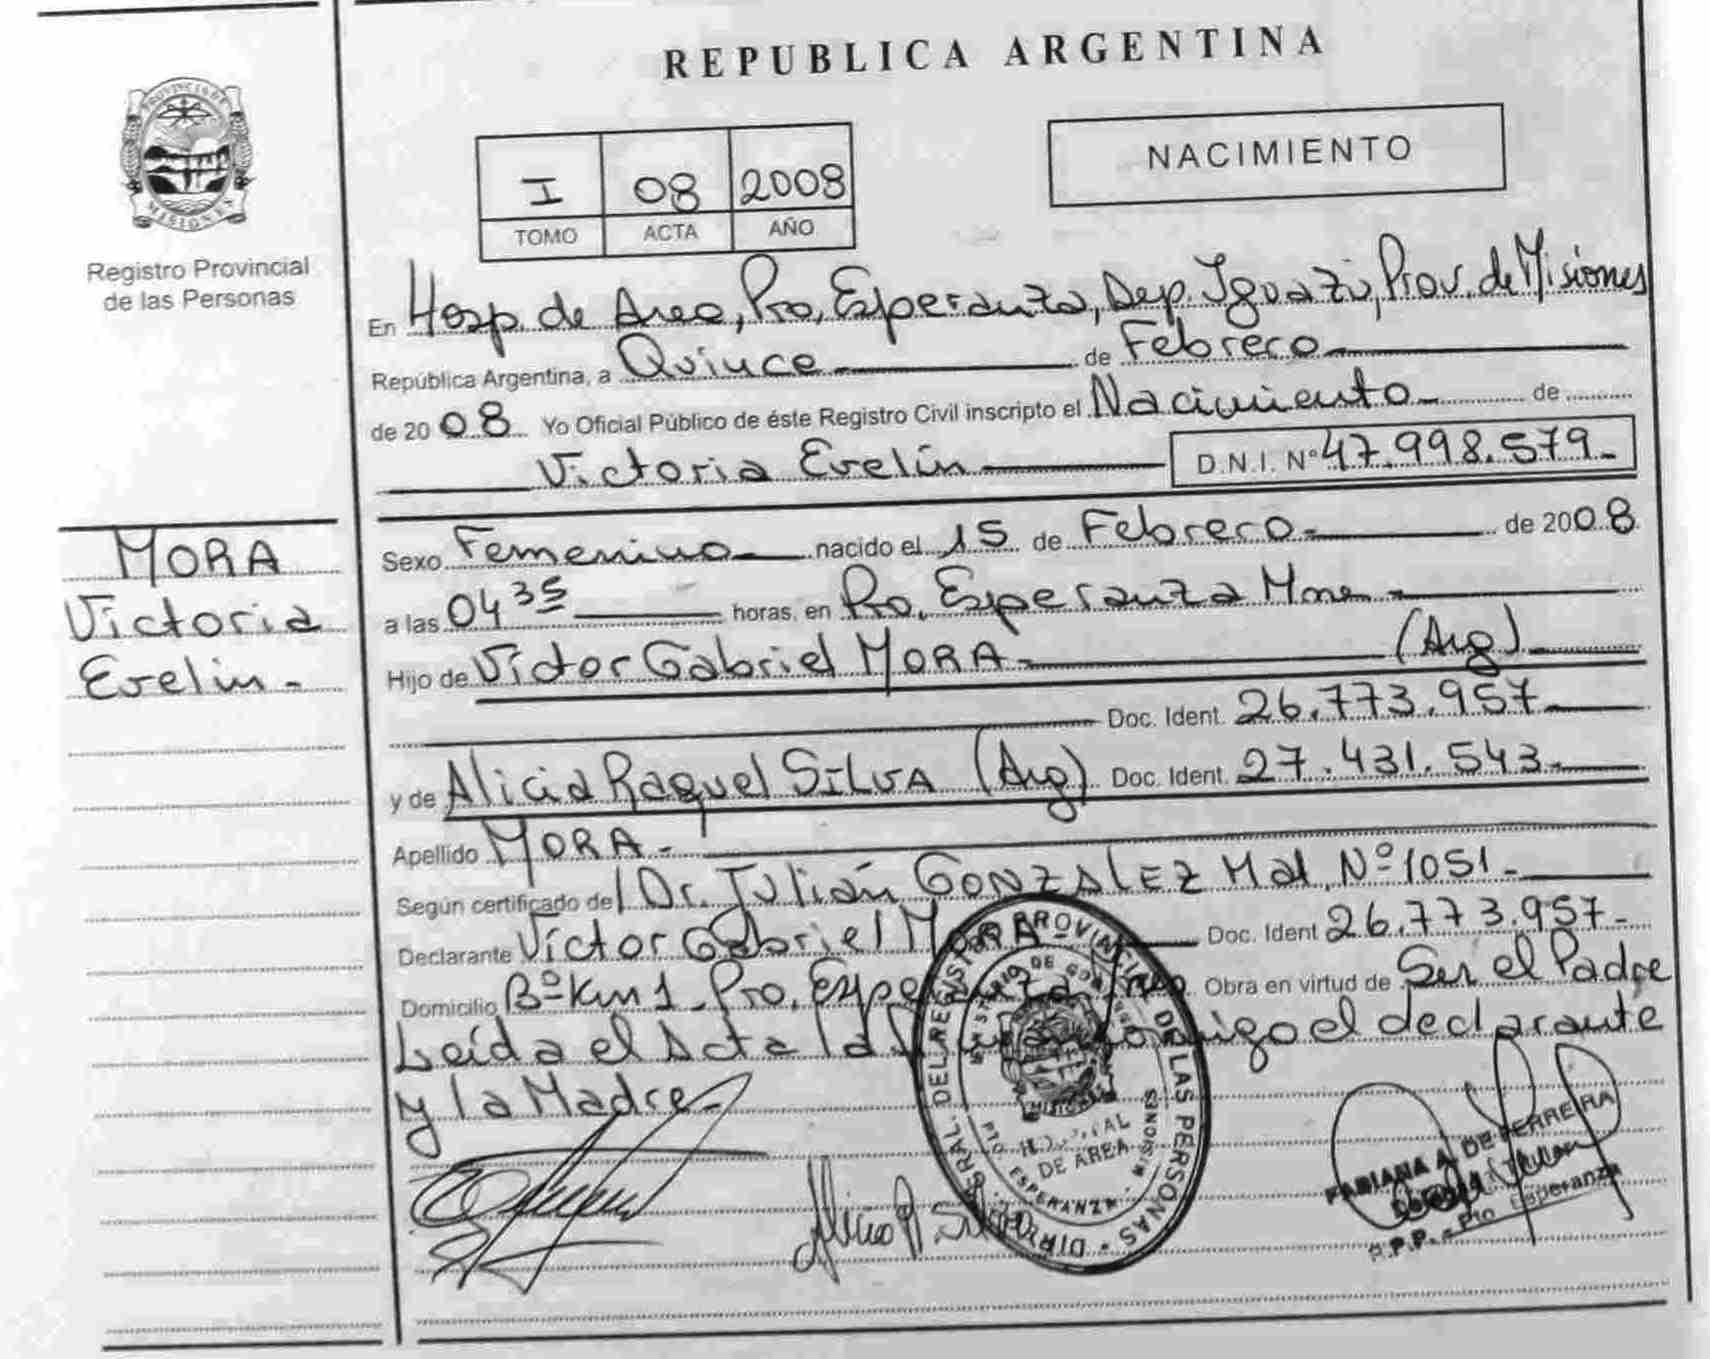 REPUBLICA ARGENTINA
PROVINCIA DE MISIONES
Registro Provincial
de las Personas
I 08 2008
TOMO ACTA AÑO
NACIMIENTO
En Hosp. de Area, Pto, Esperanza, Dep. Iguazú, Prov. de Misiones
República Argentina, a Quince de Febrero
de 2008 Yo Oficial Público de éste Registro Civil inscripto el Nacimiento de
Victoria Evelin D.N.I. Nº 47.998.579
MORA
Victoria
Evelin
Sexo Femenino nacido el 15 de Febrero de 2008
a las 04 35 horas, en Pto. Esperanza Mnes
Hijo de Víctor Gabriel MORA (Arg)
Doc. Ident. 26.773.957
y de Alicia Raquel SILVA (Arg) Doc. Ident. 27.431.543
Apellido MORA
Según certificado del Dr. Julián GONZALEZ Mat. Nº 1051
Declarante Víctor Gabriel MORA Doc. Ident 26.773.957
Domicilio Bº Km 1 Pto. Esperanza Obra en virtud de Ser el Padre
Leída el Acta la conmigo el declarante
y la Madre
DIRECCION GRAL. DEL REGISTRO PROVINCIAL DE LAS PERSONAS
MINISTERIO DE GOBIERNO
MISIONES
HOSPITAL
DE AREA
ESPERANZA - MISIONES
Alicia R Silva
FABIANA A. DE FERREIRA
R.P.P. - Pto Esperanza